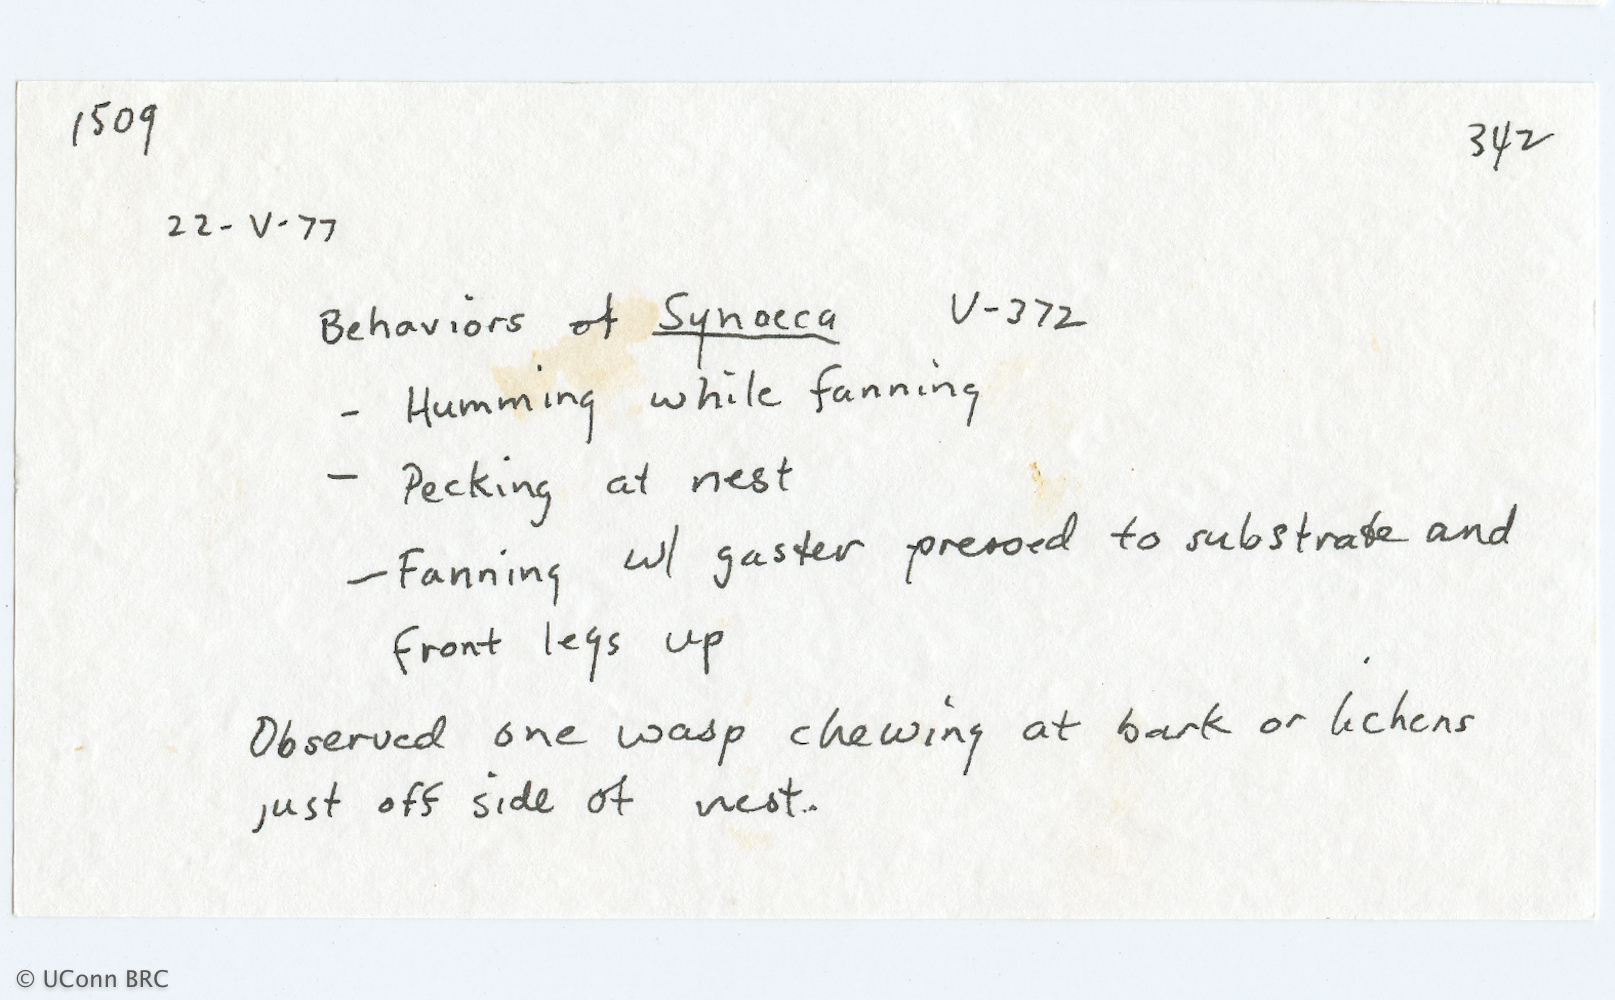 1509
342
22-V-77
Behaviors of Synoeca V-372
- Humming while fanning
- Pecking at nest
- Fanning w/ gaster pressed to substrate and
front legs up
Observed one wasp chewing at bark or lichens
just off side of nest.
© UConn BRC